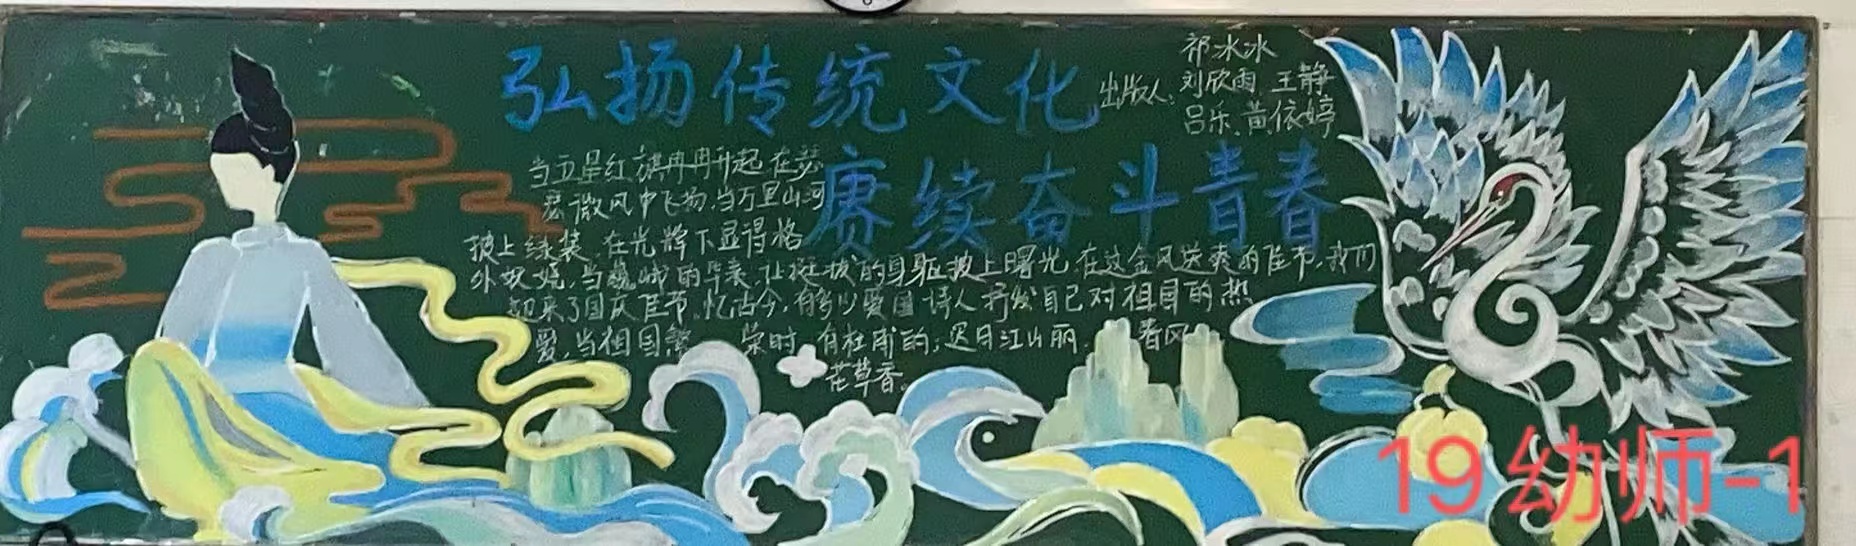 弘扬传统文化
赓续奋斗青春
出版人:
祁冰冰
刘欣雨、王静
吕乐、黄依婷
当五星红旗冉冉升起在瑟
瑟微风中飞扬,当万里山河
披上绿装,在光辉下显得格
外妖娆,当巍峨的华表,让挺拔的身躯披上曙光,在这金风送爽的佳节,我们
迎来了国庆佳节,忆古今,有多少爱国诗人抒发自己对祖国的热
爱,当祖国繁荣时,有杜甫的;迟日江山丽,春风
花草香。
19幼师-1